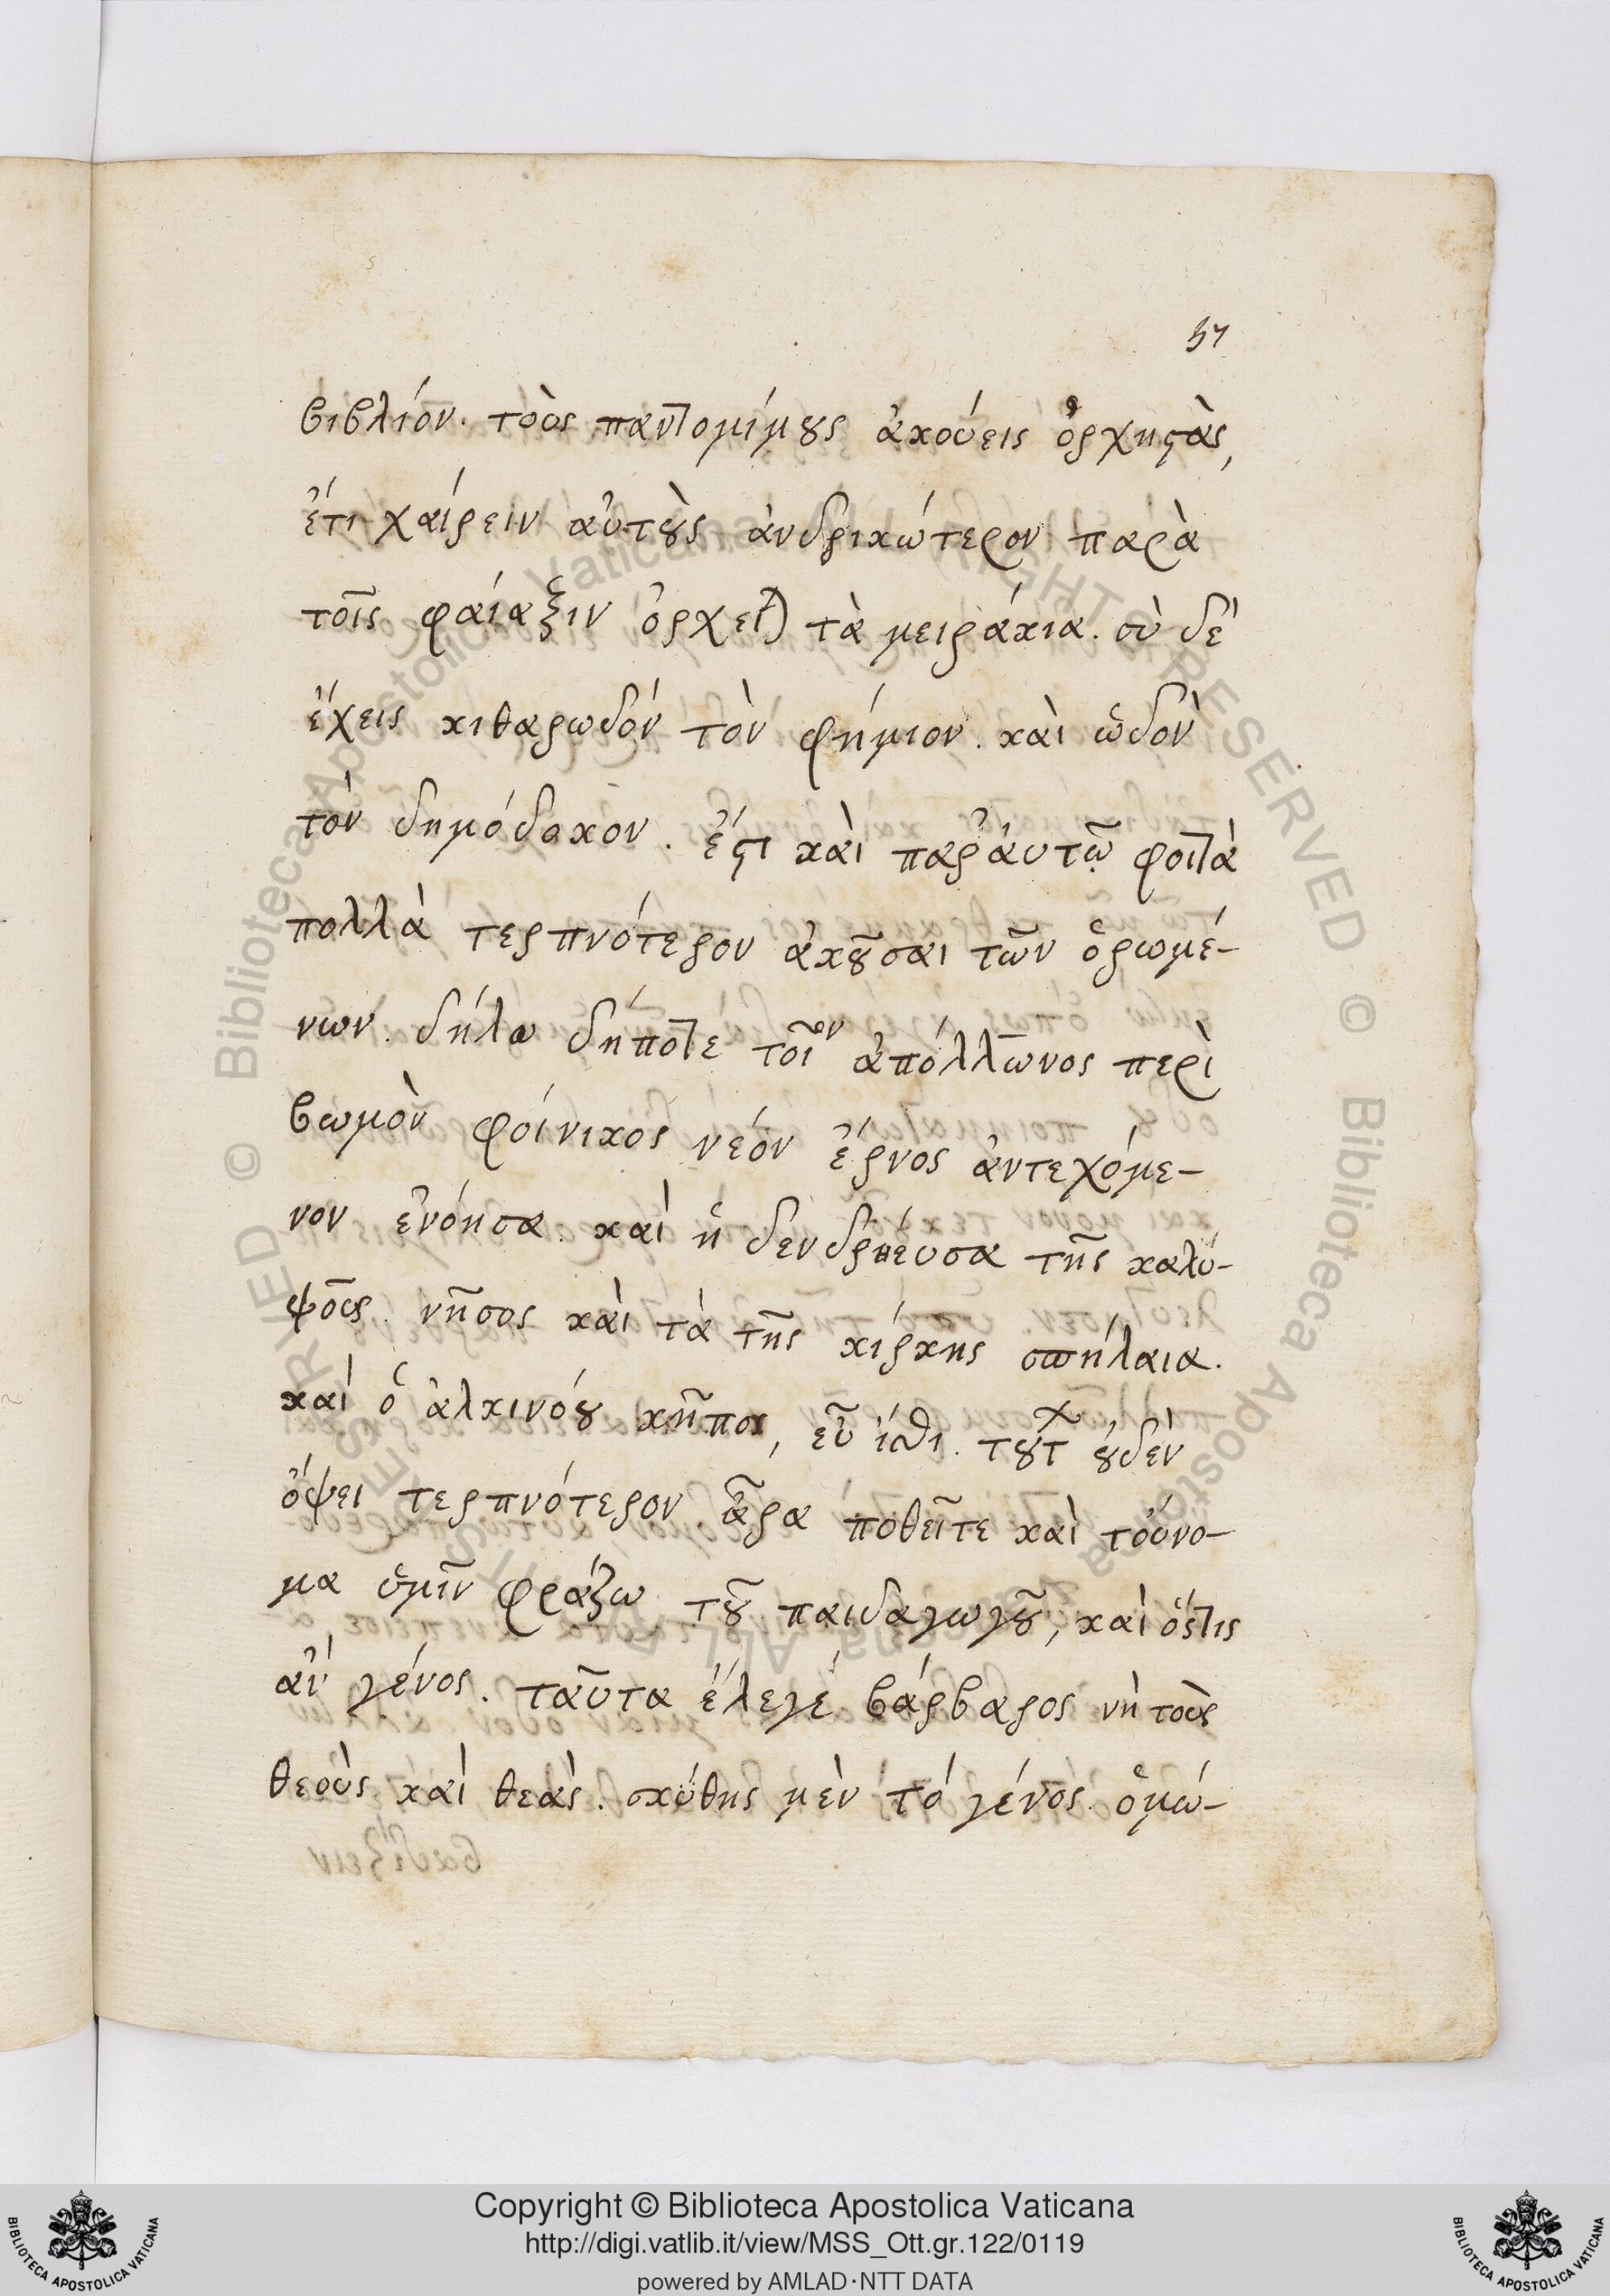 57
βιβλίον. τοὺς παντομίμους ἀκούεις ὀρχηστὰς,
ἔτι χαίρειν αὐτοὺς ἀνδρικώτερον παρὰ
τοῖς φαίαξιν ὀρχεῖται τὰ μειράκια. σὺ δὲ
ἔχεις κιθαρωδόν τὸν φήμιον. καὶ ὠδὸν
τὸν δημόδοκον. ἔστι καὶ παρ' ἀυτῶ φοιτὰ
πολλὰ τερπνότερον ἀκοῦσαι τῶν ὁρωμέ-
νων. δήλω δήποτε τοῖον ἀπόλλωνος περὶ
βωμὸν φοίνικος νέον ἔρνος ἀντεχόμε-
νον ἐνόησα. καὶ ἡ δενδρήευσα τῆς καλυ-
ψοῦς. νῆσος καὶ τὰ τῆς κίρκης σπήλαια.
καὶ ὁ ἀλκινόου κῆπος, εὖ ἴσθι. τοῦτ οὐδὲν
ὄψει τερπνότερον ἆρα ποθεῖτε καὶ τοὔνο-
μα ὑμῖν φράξω τοῦ παιδαγωγοῦ, καὶ ὅστις
ἀν γένος. ταῦτα ἔλεγέ βάρβαρος νὴ τοὺς
θεοὺς καὶ θεὰς. σκύθης μὲν τὸ γένος. ὁμώ-
Copyright © Biblioteca Apostolica Vaticana
http://digi.vatlib.it/view/MSS_Ott.gr.122/0119
powered by AMLAD·NTT DATA
BIBLIOTECA APOSTOLICA VATICANA
BIBLIOTECA APOSTOLICA VATICANA